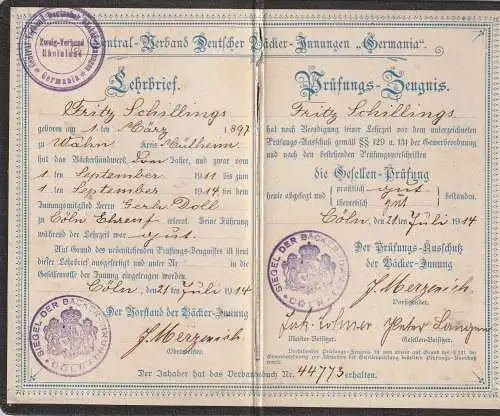 Central-Verband Deutscher Bäcker-Innungen „Germania“.
Zweig-Verband
Rheinland
Germania
Lehrbrief.
Fritz Schillings
geboren am 1 ten März 1897
zu Wahn Kreis Mülheim
hat das Bäckerhandwerk, drei Jahre, und zwar vom
1 ten September 1911 bis zum
1 ten September 1914 bei dem
Innungsmitglied Herrn Gerh. Doll
zu Cöln Ehrenf. erlernt. Seine Führung
während der Lehrzeit war gut.
Auf Grund des nebenstehenden Prüfungs-Zeugnisses ist
dieser Lehrbrief ausgefertigt und unter Nr. in die
Gesellenrolle der Innung eingetragen worden.
Cöln, den 21 ten Juli 1914
Der Vorstand der Bäcker-Innung
J. Merzenich
Obermeister.
SIEGEL DER BÄCKER-INNUNG
CÖLN
Prüfungs-Zeugnis.
Fritz Schillings
hat nach Beendigung seiner Lehrzeit vor dem unterzeichneten
Prüfungs-Ausschuß gemäß §§ 129 u. 131 der Gewerbeordnung
und nach den bestehenden Prüfungsvorschriften
die Gesellen-Prüfung
heute abgelegt und praktisch gut bestanden.
theoretisch gut
Cöln, den 21 ten Juli 1914
Der Prüfungs-Ausschuß
der Bäcker-Innung
J. Merzenich
Vorsitzender.
SIEGEL DER BÄCKER-INNUNG
CÖLN
Peter Langen
Meister-Beisitzer. Gesellen-Beisitzer.
Der Inhaber hat das Verbandsbuch Nr. 44773 erhalten.